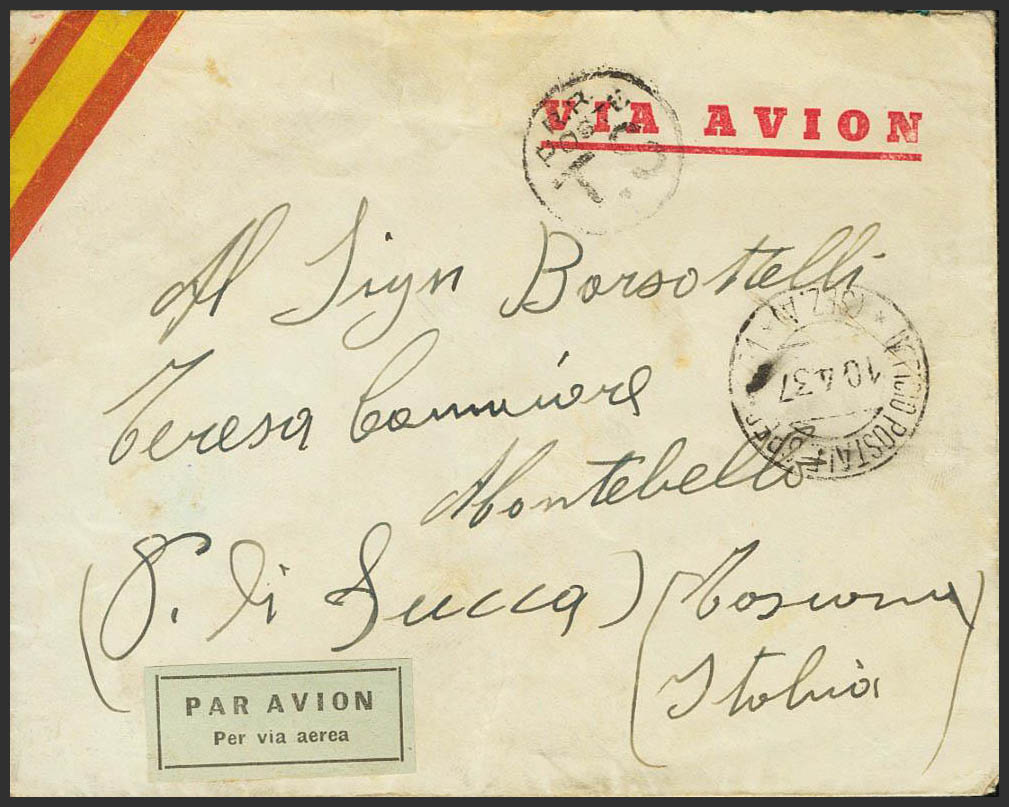 VIA AVION
Al Sign Borsottelli
Teresa
Montebello
(P. di Lucca) (Toscana
Italia
10.4.37
UFFICIO POSTALE SPECIALE
PAR AVION
Per via aerea